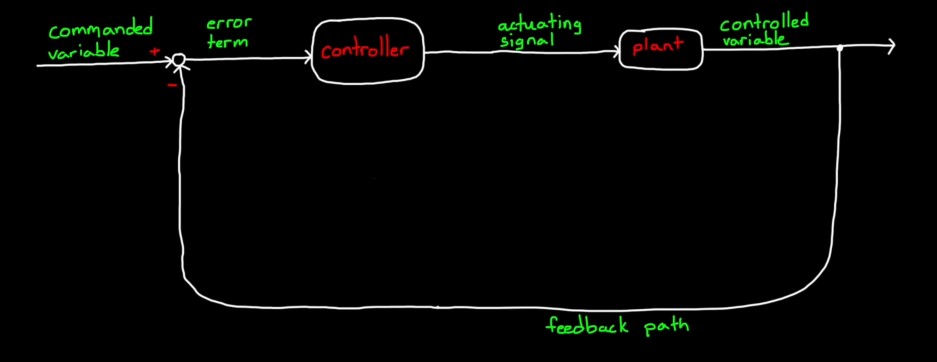 commanded
variable
+
-
error
term
controller
actuating
signal
plant
controlled
variable
feedback path